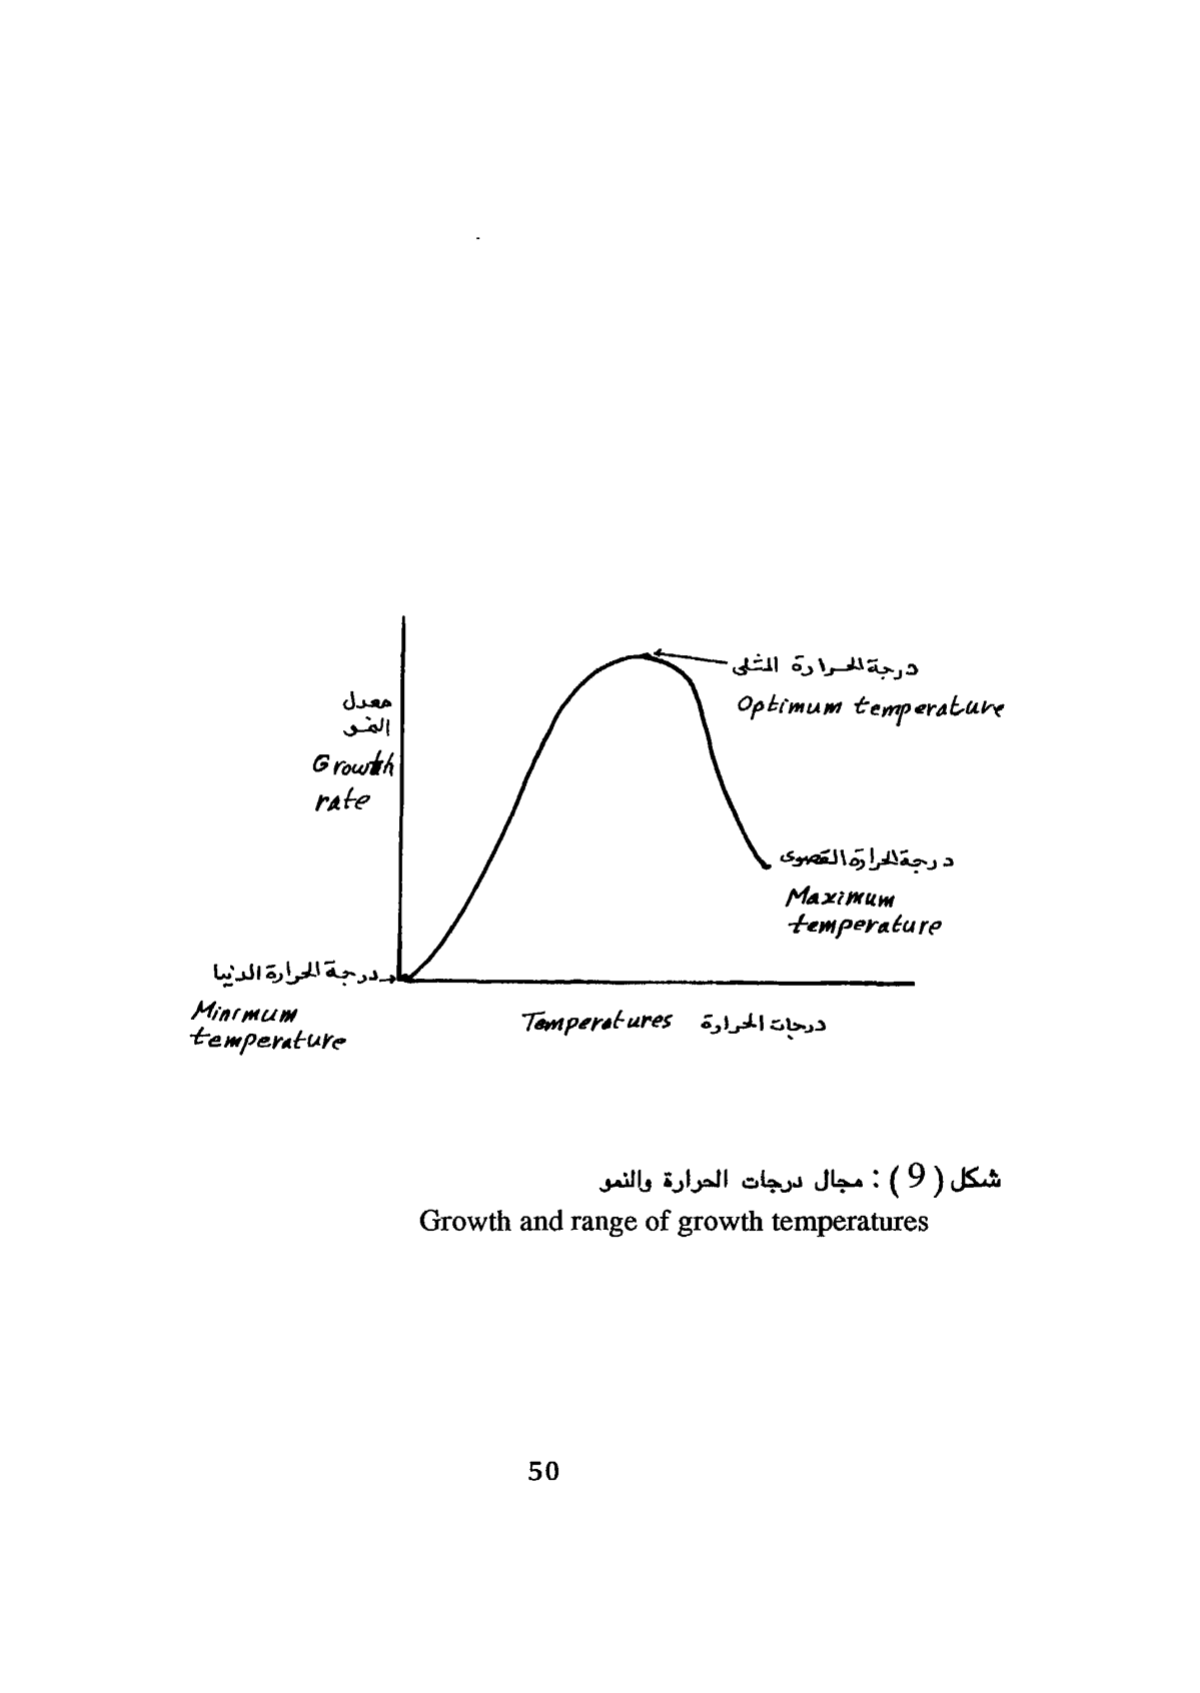 درجة الحرارة المثلى
Optimum temperature
معدل
النمو
Growth
rate
درجة الحرارة القصوى
Maximum
temperature
درجة الحرارة الدنيا
Minimum
temperature
Temperatures درجات الحرارة
شكل ( 9 ) : مجال درجات الحرارة والنمو
Growth and range of growth temperatures
50